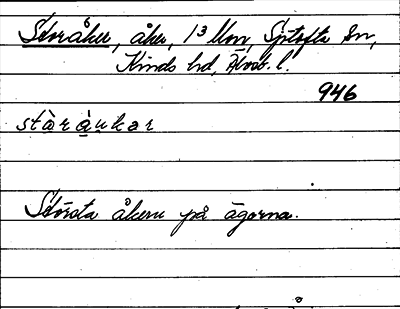 Storåker, åker, 1³ Mon, Sjötofta Sn,
Kinds hd, Älvsb. l.
946
stàràukar
Största åkern på ägorna.